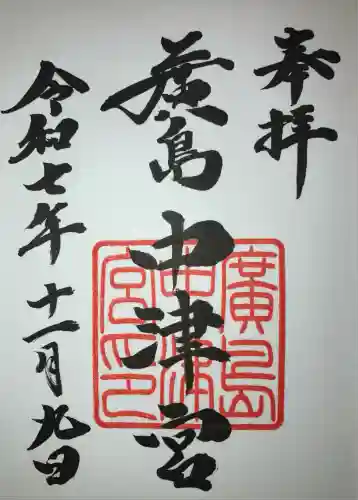 奉拝
廣島
中津宮
令和七年十一月九日
廣島
中津
宮印